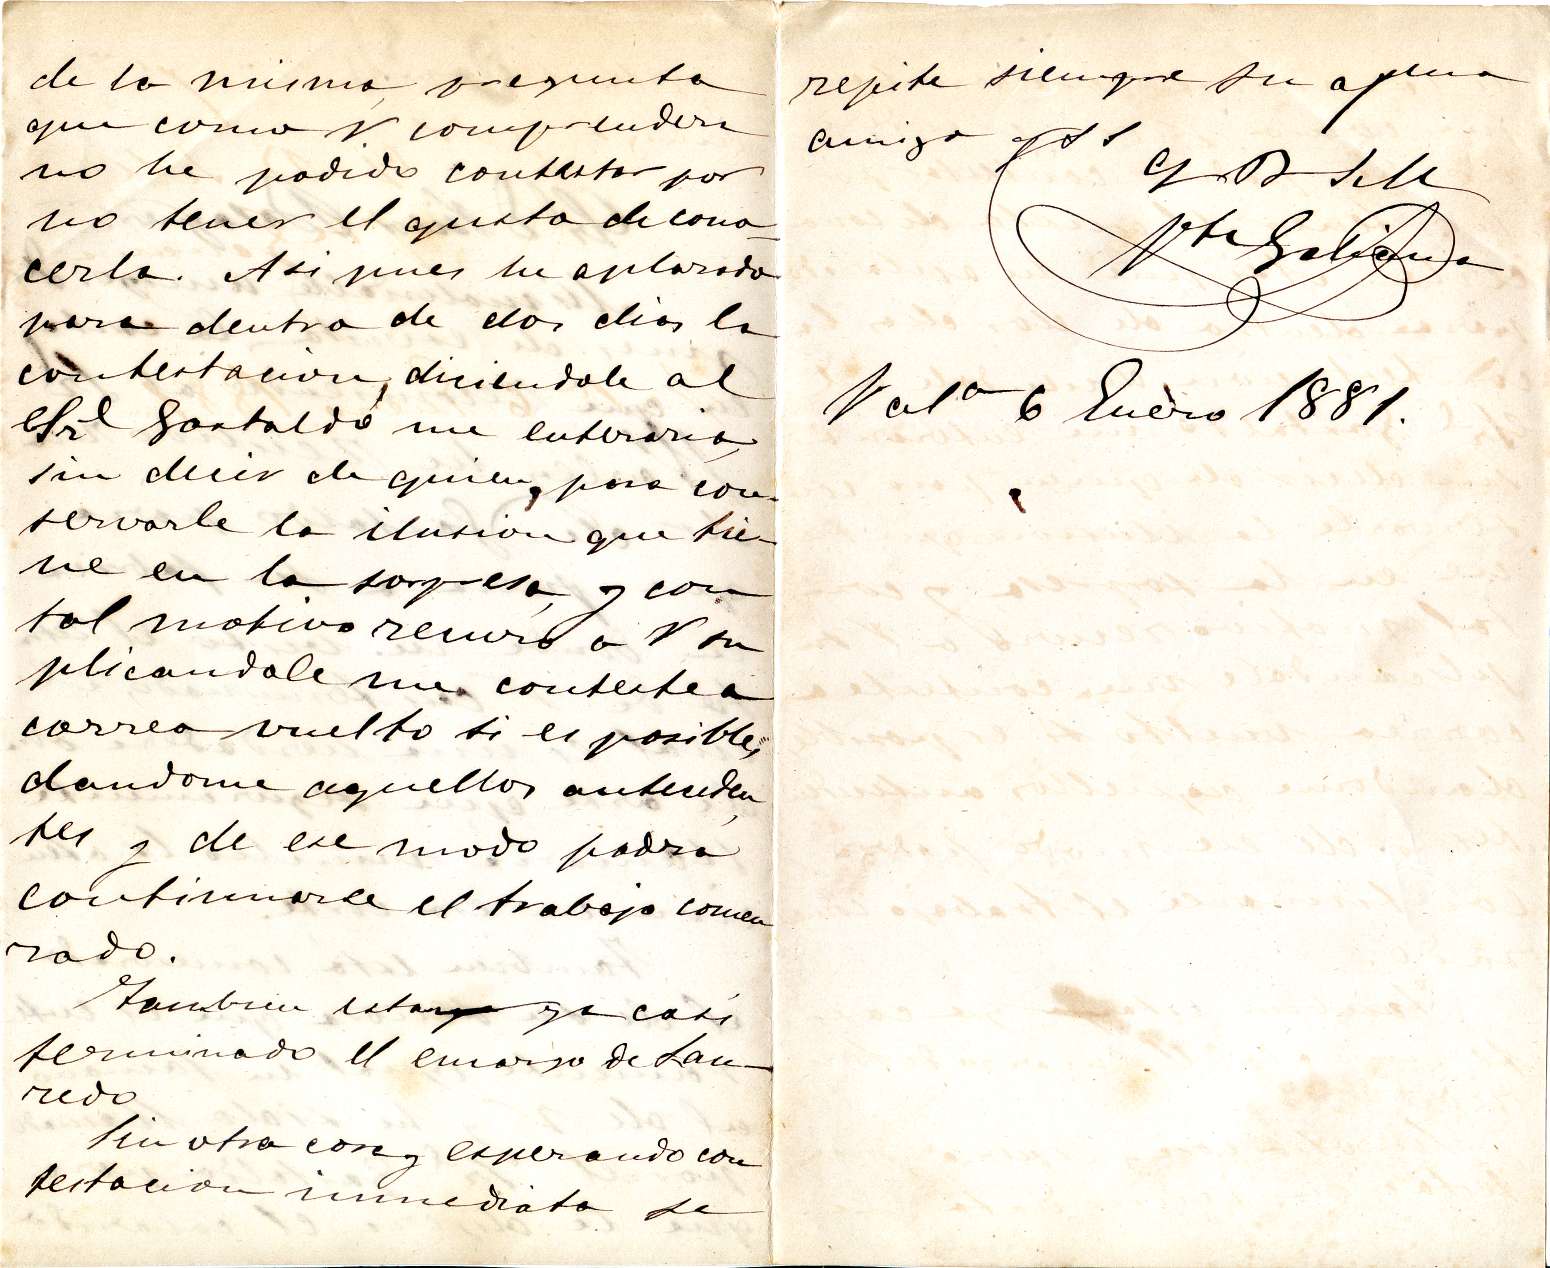 de la misma, pregunta
que como V comprendera
no he podido contestar por
no tener el gusto de cono-
cerla. Asi pues he aplazado
para dentro de dos dias la
contestacion, diciendole al
Gastaldo me enteraria,
sin decir de quien, para con-
servarle la ilusion que tie-
ne en la sorpresa, y con
tal motivo recurro a V su
plicandole me conteste a
correo vuelto si es posible,
dandome aquellos anteceden,
tes y de ese modo podra
continuarse el trabajo comen
zado.
Tambien esta ya casi
terminado el encargo de Lau-
redo
Sin otra cosa y esperando con
testacion inmediata se
repite siempre su afma
amigo q S S
q B S M
Vte Galiana
Vala 6 Enero 1881.